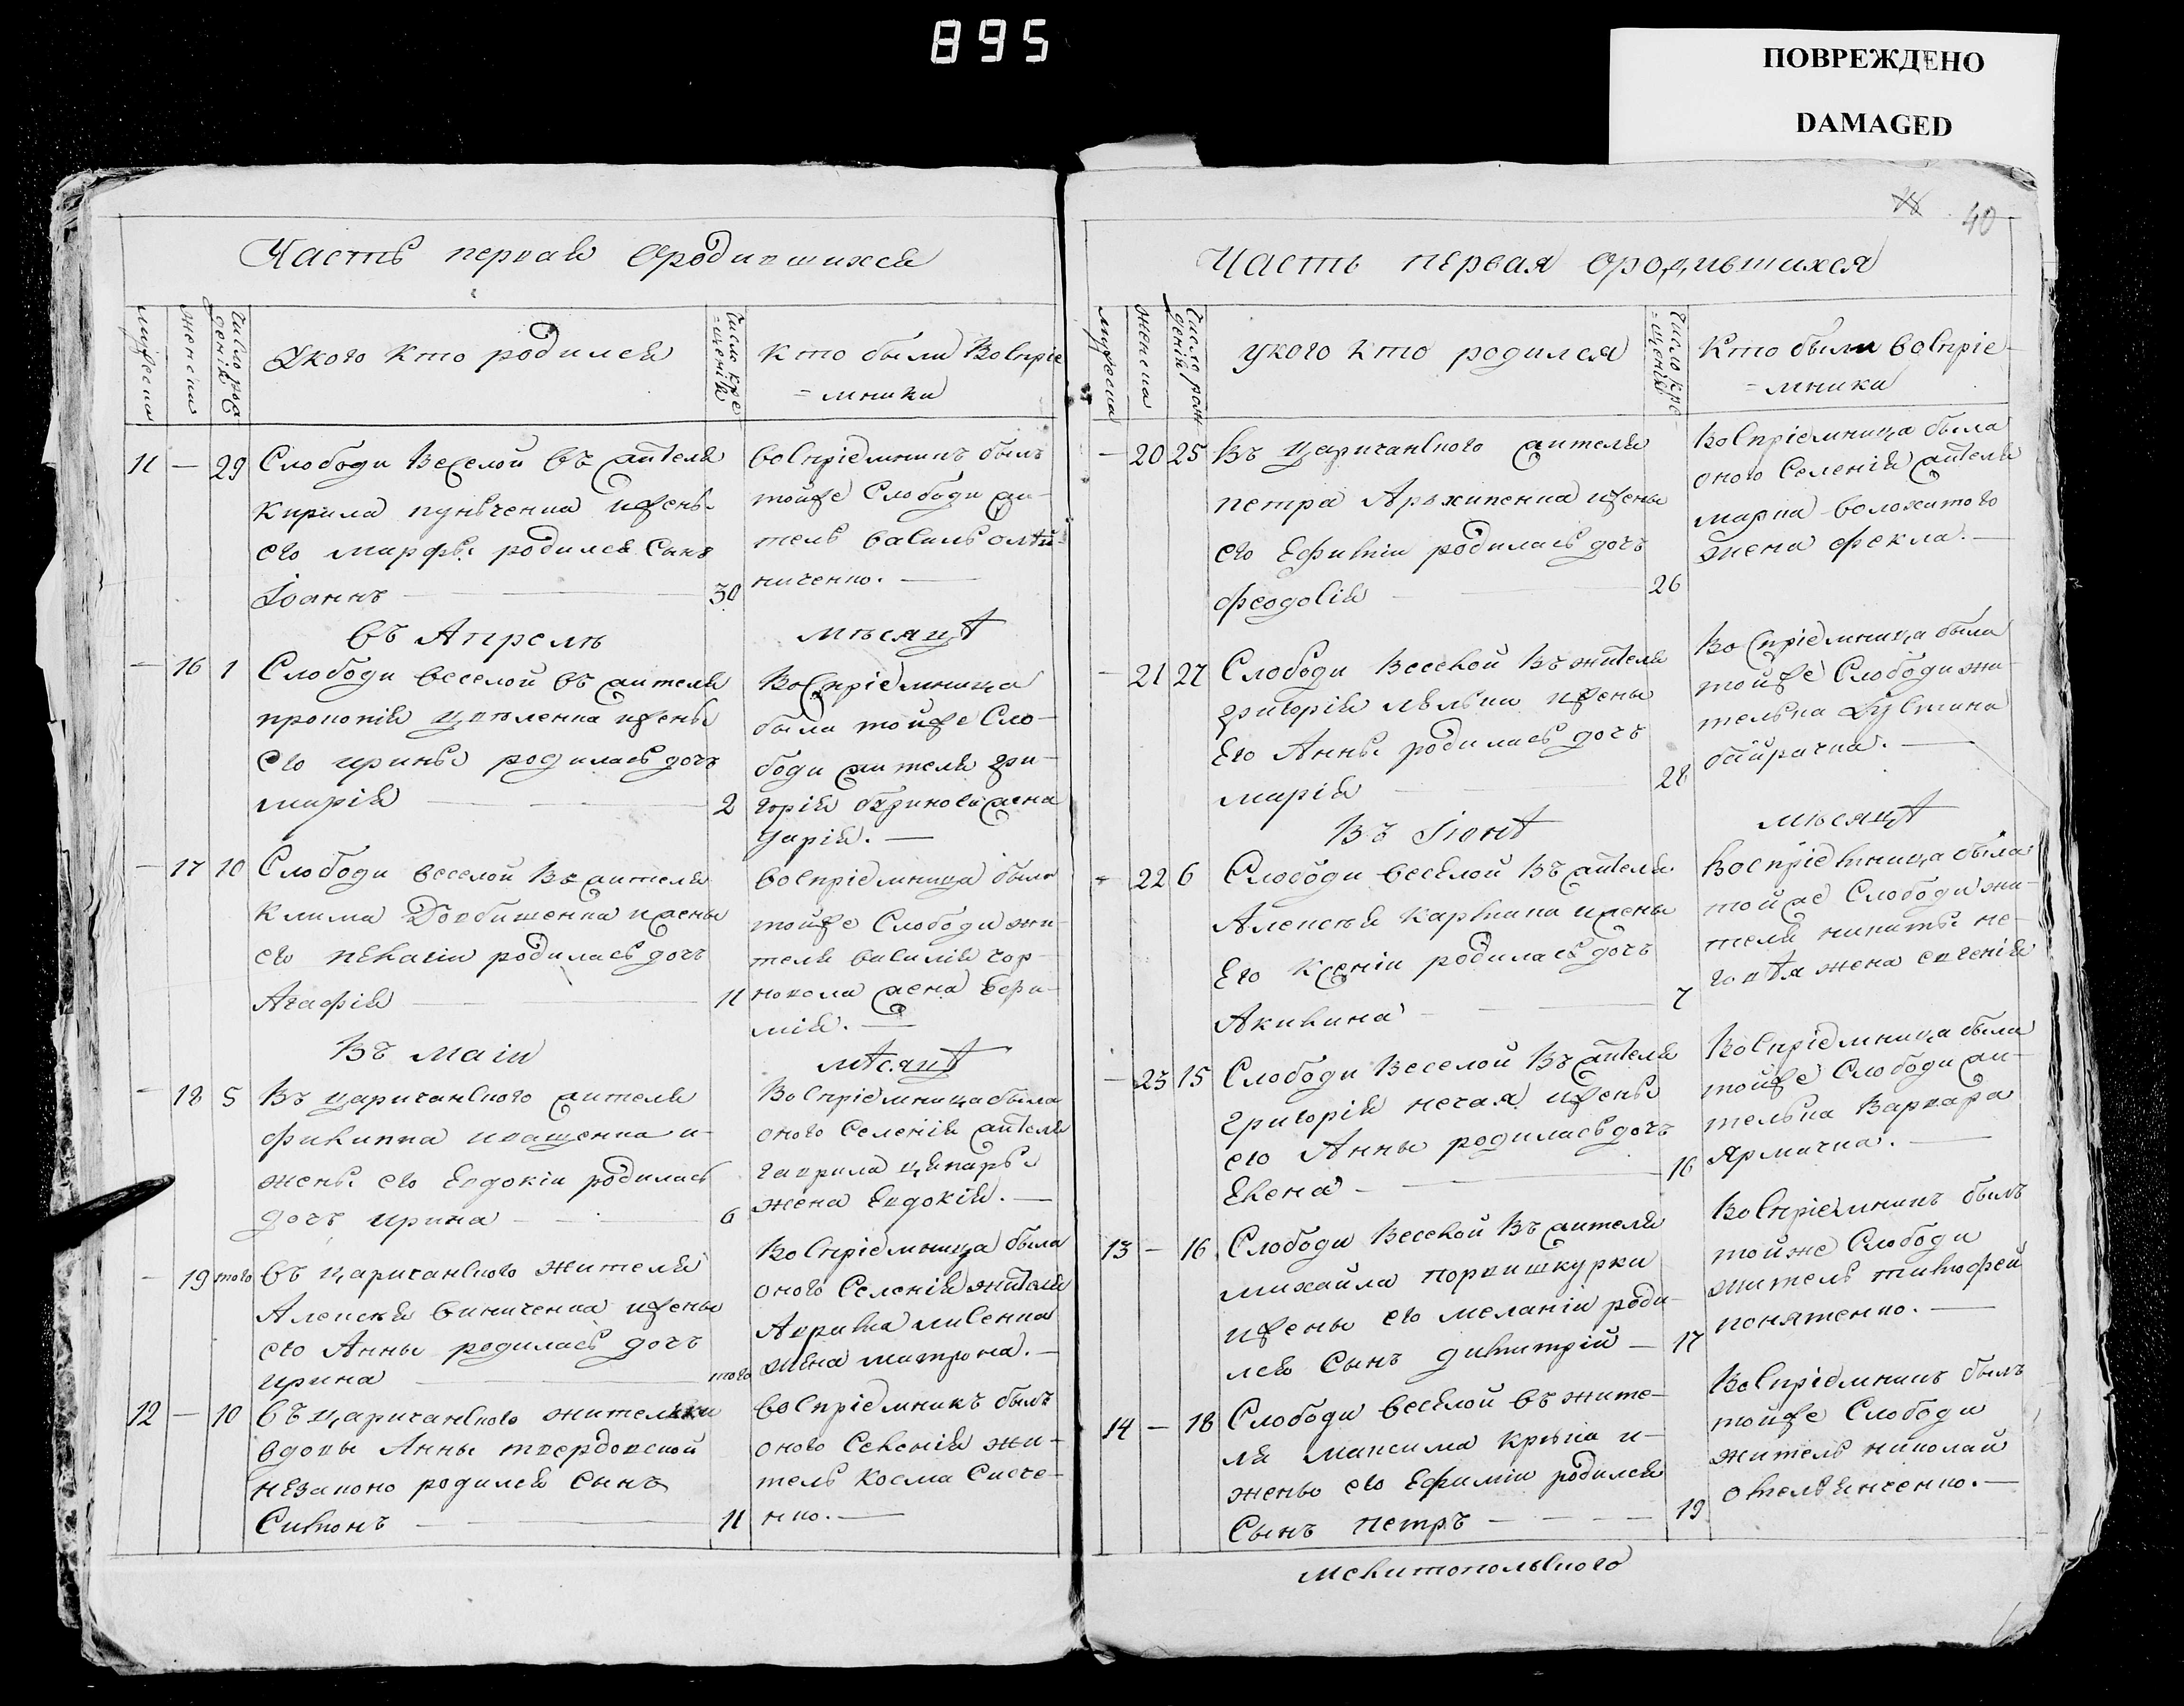 895
ПОВРЕЖДЕНО
DAMAGED
40
Часть первая ородившихся
мужеска
женска
число рож
денія
Укого кто родился
число кре
=щенія
кто были воспріе
=мники
11 — 29 Слободи веселой въ жителя
кирила пунѣченка ижены
его марфы родился сынъ
Іоаннъ — 30
воспріемникъ былъ
тойже Слободи жи-
тель василь
ниченко. —
въ Апрелѣ мѣсяцѣ
— 16 1 Слободи веселой въ жителя
прокопія ижены
его ирины родилась дочь
марія — 2
воспріемница
была тойже Сло-
боди жителя гри-
горія жена
дарія. —
— 17 10 Слободи веселой въ жителя
клима Довбишенка ижены
его пелагіи родилась дочь
Агафія — 11
воспріемница была
тойже Слободи жи-
теля василія чор-
новола жена Ефи-
мія. —
въ маіи мѣсяцѣ
— 18 5 въ царичанского жителя
филиппа иващенка и-
жены его Евдокіи родилась
дочь ирина — 6
воспріемница была
оного селенія жителя
гаврила
жена Евдокія. —
— 19 того въ царичанского жителя
Алексѣя виниченка ижены
его Анны родилась дочь
ирина — того
воспріемница была
оного селенія жителя
Аврама лисенка
жена матрона. —
12 — 10 въ царичанского жителки
вдовы Анны твердовской
незаконо родился сынъ
Симонъ — 11
воспріемникъ былъ
оного селенія жи-
тель косма
нко. —
Часть первая ородившихся
мужеска
женска
число рож
денія
укого кто родился
число кре
=щенія
кто были воспріе-
=мники
— 20 25 въ царичанского жителя
петра Архипенка ижены
его Ефиміи родилась дочь
феодосія — 26
воспріемница была
оного селенія жителя
марка воложитого
жена фекла. —
— 21 27 Слободи веселой въ жителя
григорія ижены
его Анны родилась дочь
марія — 28
воспріемница была
тойже Слободи жи-
телька Іустина
байрачна. —
въ Іюнѣ мѣсяцѣ
— 22 6 Слободи веселой въ жителя
Алексѣя ижены
его ксеніи родилась дочь
Акилина — 7
воспріемница была
тойже Слободи жи-
теля никиты не-
говѣя жена евгенія
— 23 15 Слободи веселой въ жителя
григорія нечая ижены
его Анны родилась дочь
Елена — 16
воспріемница была
тойже Слободи жи-
телька варвара
Ярмачна. —
13 — 16 Слободи веселой въ жителя
михайла порвишкурки
ижены его меланіи роди-
лся сынъ димитрій — 17
воспріемникъ былъ
тойже Слободи
житель тимофей
понятенко. —
14 — 18 Слободи веселой въ жите-
ля максима и-
жены его Ефиміи родился
сынъ петръ — 19
воспріемникъ былъ
тойже Слободи
житель николай
—
мелитопольского